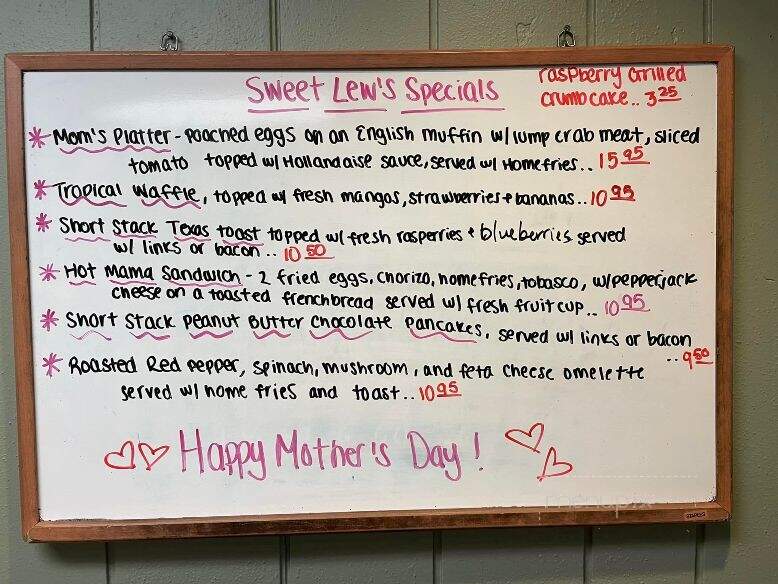 Sweet Lew's Specials
raspberry Grilled
crumbcake.. 3 25
* Mom's Platter - poached eggs on an English muffin w/ lump crab meat, sliced
tomato topped w/ Hollandaise sauce, served w/ Homefries.. 15 95
* Tropical Waffle, topped w/ fresh mangos, strawberries + bananas.. 10 95
* Short Stack Texas toast topped w/ fresh rasperries + blueberries served
w/ links or bacon .. 10 50
* Hot Mama Sandwich - 2 fried eggs, chorizo, homefries, tobasco, w/ pepperjack
cheese on a toasted frenchbread served w/ fresh fruit cup.. 10 95
* Short Stack Peanut Butter Chocolate Pancakes, served w/ links or bacon
.. 9 50
* Roasted Red pepper, spinach, mushroom, and feta cheese omelette
served w/ home fries and toast.. 10 95
Happy Mother's Day!
menupix
STAPLES